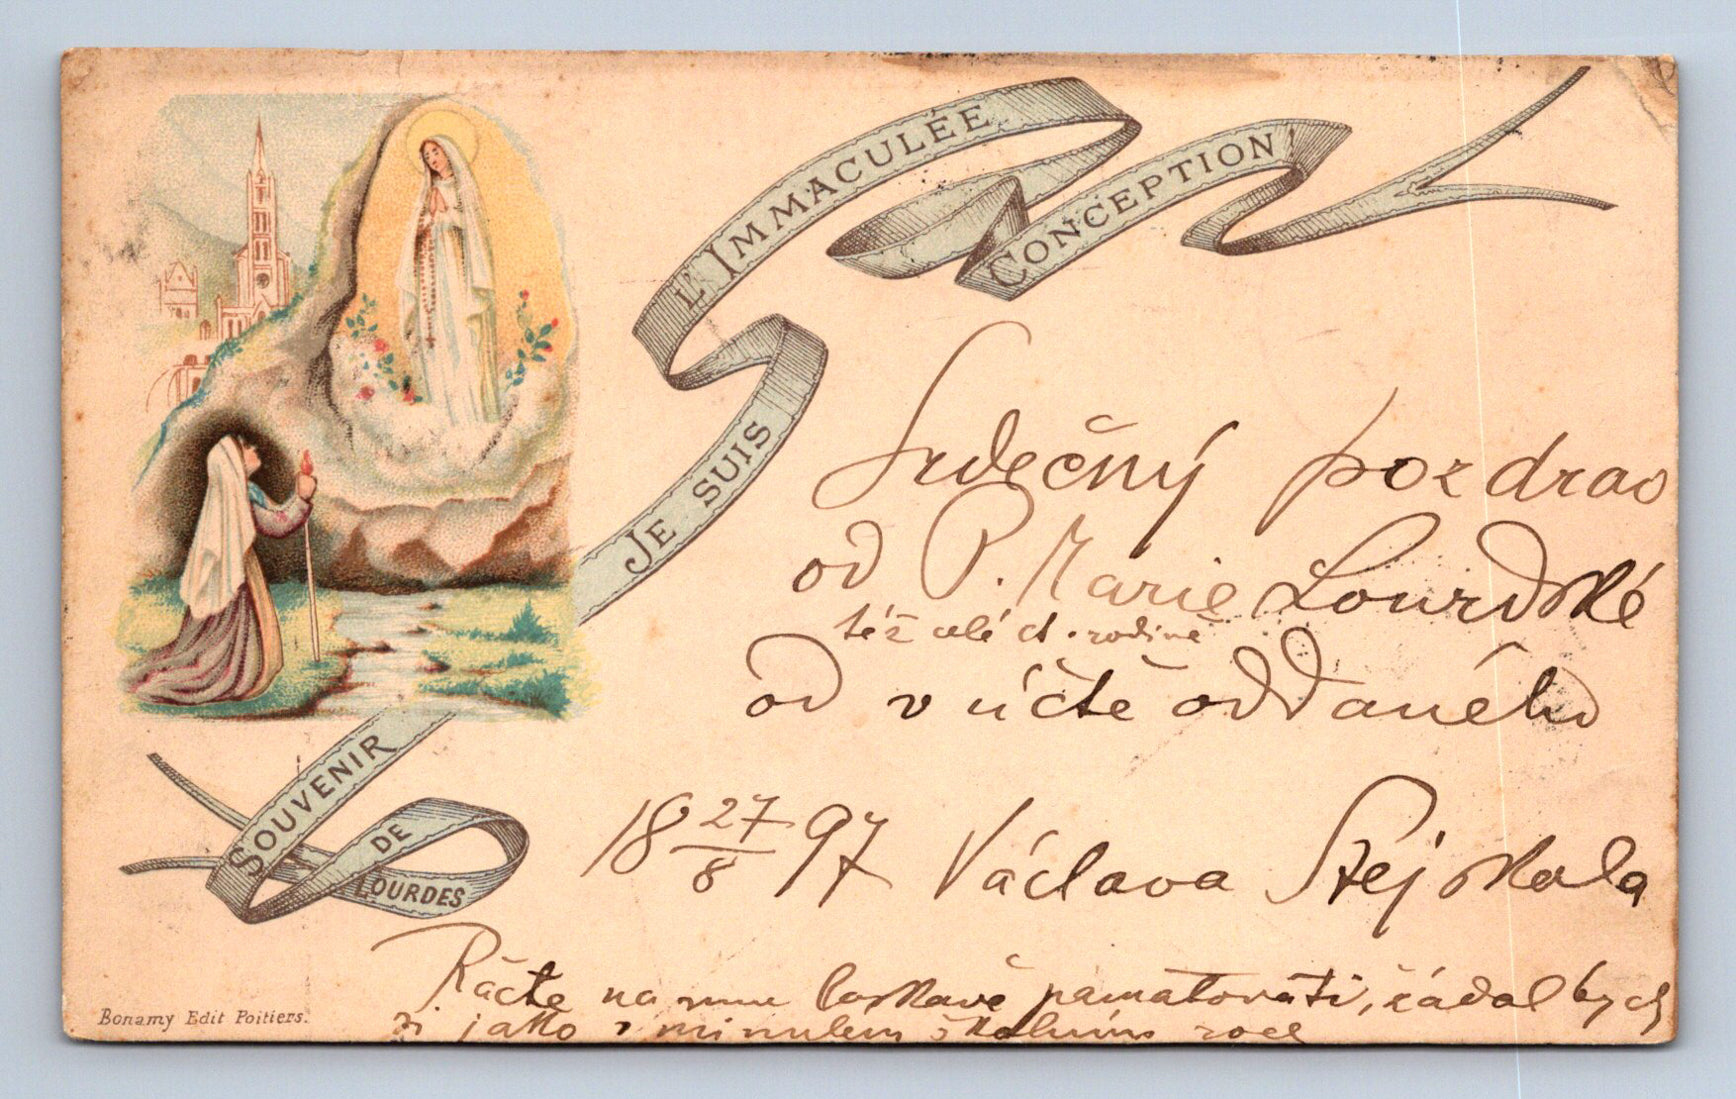 L'IMMACULÉE
CONCEPTION!
JE SUIS
Srdečný pozdrav
od P. Marie Lourdské
též celé ct. rodině
od v úctě oddaného
18 27/8 97 Václava Stejskala
SOUVENIR
DE
LOURDES
Ráčte na mne laskavě pamatovati, žádal bych
si jako v minulém školním roce
Bonamy Edit Poitiers.